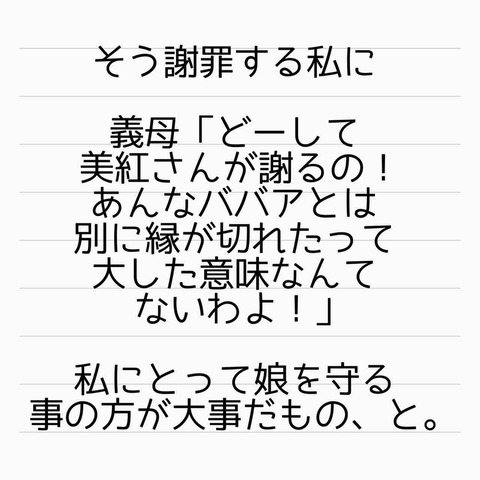 そう謝罪する私に
義母「どーして
美紅さんが謝るの！
あんなババアとは
別に縁が切れたって
大した意味なんて
ないわよ！」
私にとって娘を守る
事の方が大事だもの、と。